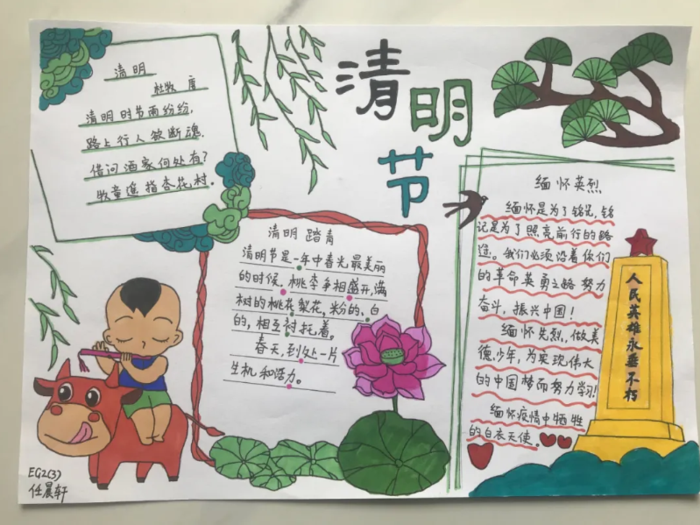 清明节
清明
杜牧 唐
清明时节雨纷纷,
路上行人欲断魂.
借问酒家何处有?
牧童遥指杏花村.
清明 踏青
清明节是一年中春光最美丽
的时候.桃李争相盛开,满
树的桃花梨花,粉的、白
的,相互衬托着。
春天,到处一片
生机和活力。
缅怀英烈
缅怀是为了铭记,铭
记是为了照亮前行的路
途。我们必须沿着他们
的革命英勇之路 努力
奋斗,振兴中国!
缅怀先烈,做美
德少年,为实现伟大
的中国梦而努力学习!
缅怀疫情中牺牲
的白衣天使.
人民英雄永垂不朽
EG2(3)
任晨轩